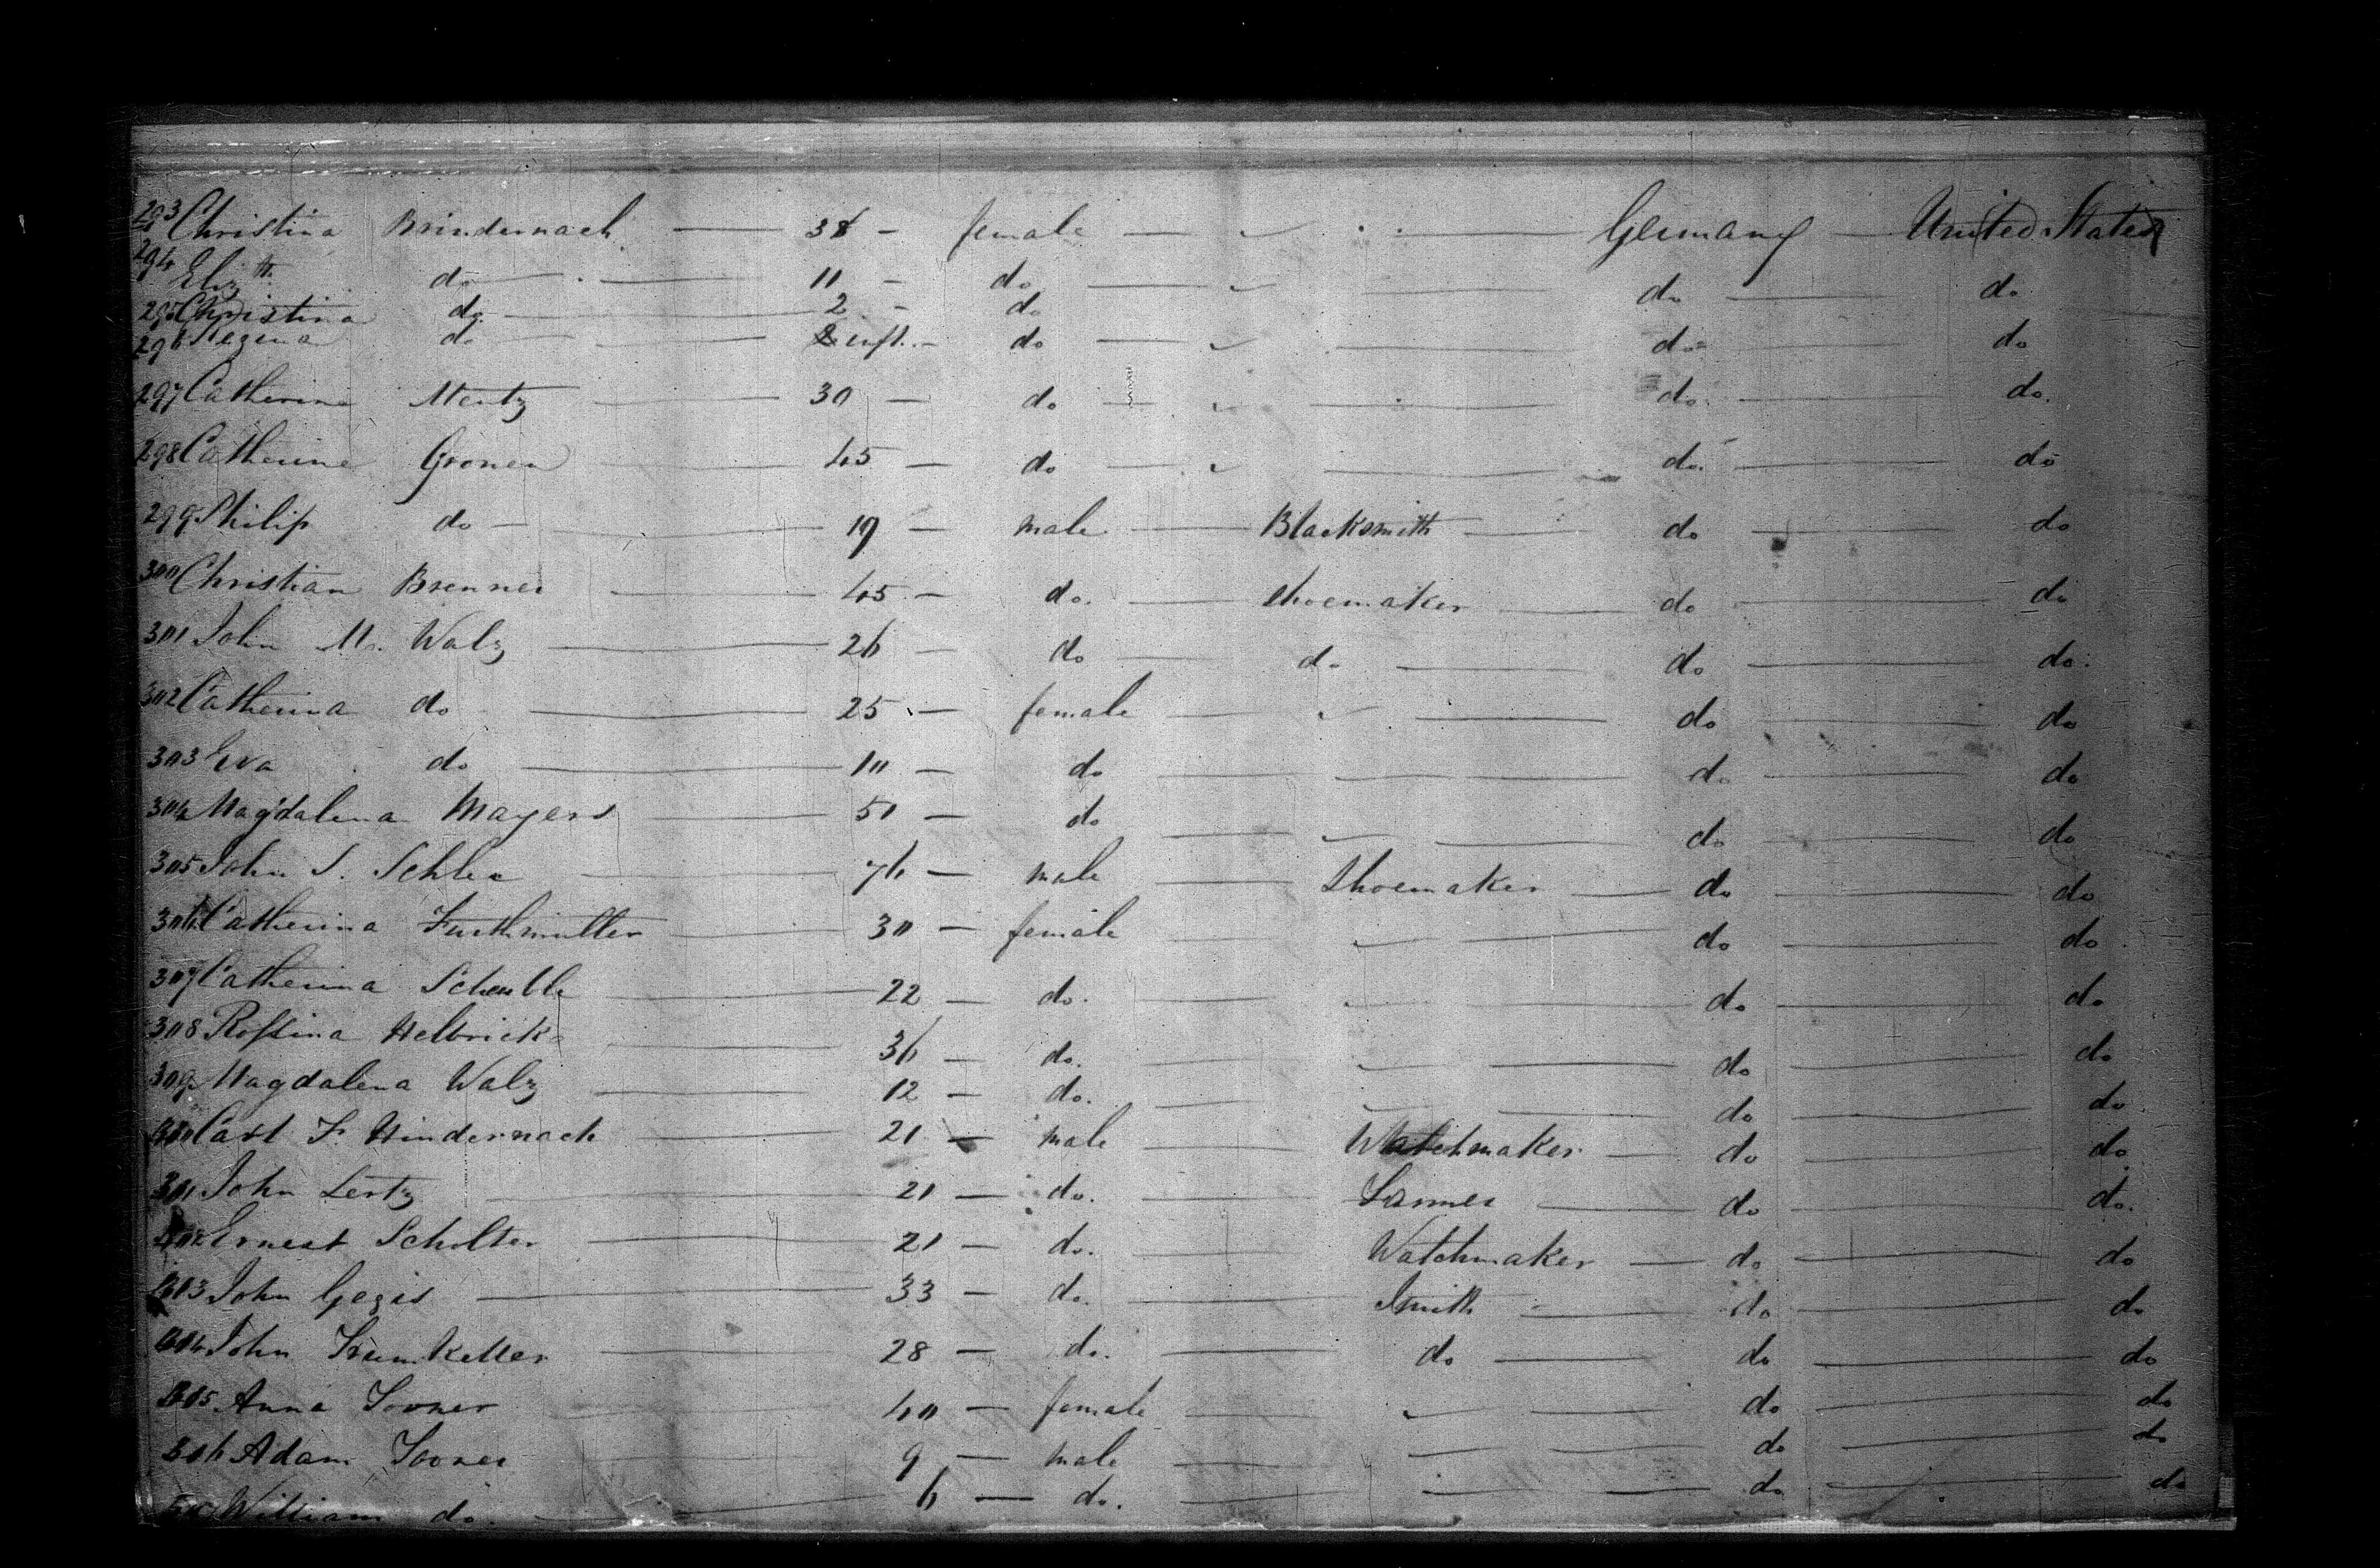 293 Christina Brindernach 38 female Germany United States
294 Elizth do 11 do do do
295 Christina do 2 do
296 Regina do inft. do do do
297 Catherine Mentz 30 do do do.
298 Catherine Gronen 45 do do. do
299 Philip do 19 male Blacksmith do do
300 Christian Brenner 45 do. shoemaker do do
301 John M. Walz 26 do do do do.
302 Catherina do 25 female do do
303 Eva do 10 do do do
304 Magdalena Mayers 50 do do do
305 John S. Schlee 76 male Shoemaker do do
306 Catherina Furthmuller 30 female do do
307 Catherina Scheuble 22 do. do do
308 Rossina Helbrick 36 do. do do
309 Magdalena Walz 12 do. do do
Carl F. Hindernach 21 male Watchmaker do do
John Lertz 20 do. Farmer do do.
Ernest Scholter 21 do. Watchmaker do do
John Gegis 33 do. Smith do do
John Trumkeller 28 do. do do do
Anna Sooner 40 female do do
Adam Sooner 9 male do do
William do. 6 do. do do